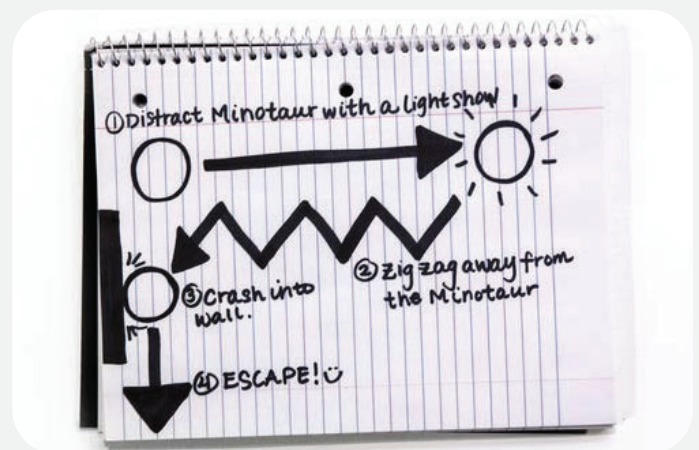 ① Distract Minotaur with a lightshow
② Zig zag away from
the Minotaur
③ Crash into
wall.
④ ESCAPE! ☺